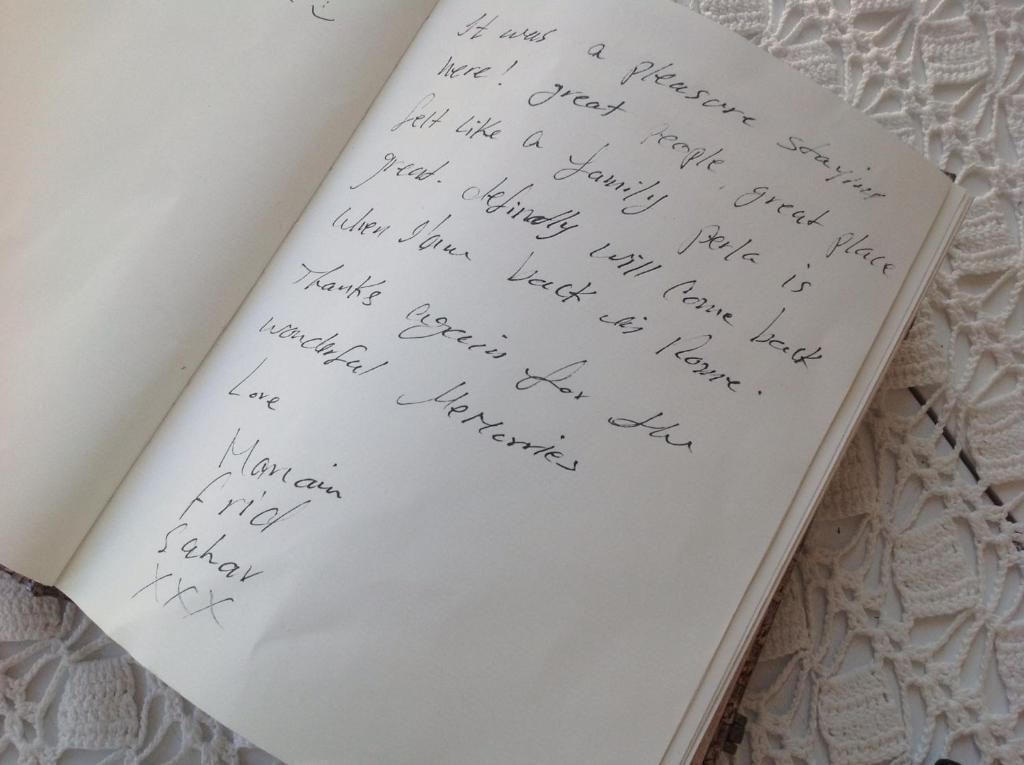 It was a pleasure staying
here! great people, great place
felt like a family perla is
great. definatly will come back
when I am back in Rome.
Thanks again for the
wonderful Memorries
Love
Mariam
Frid
Sahar
XXX